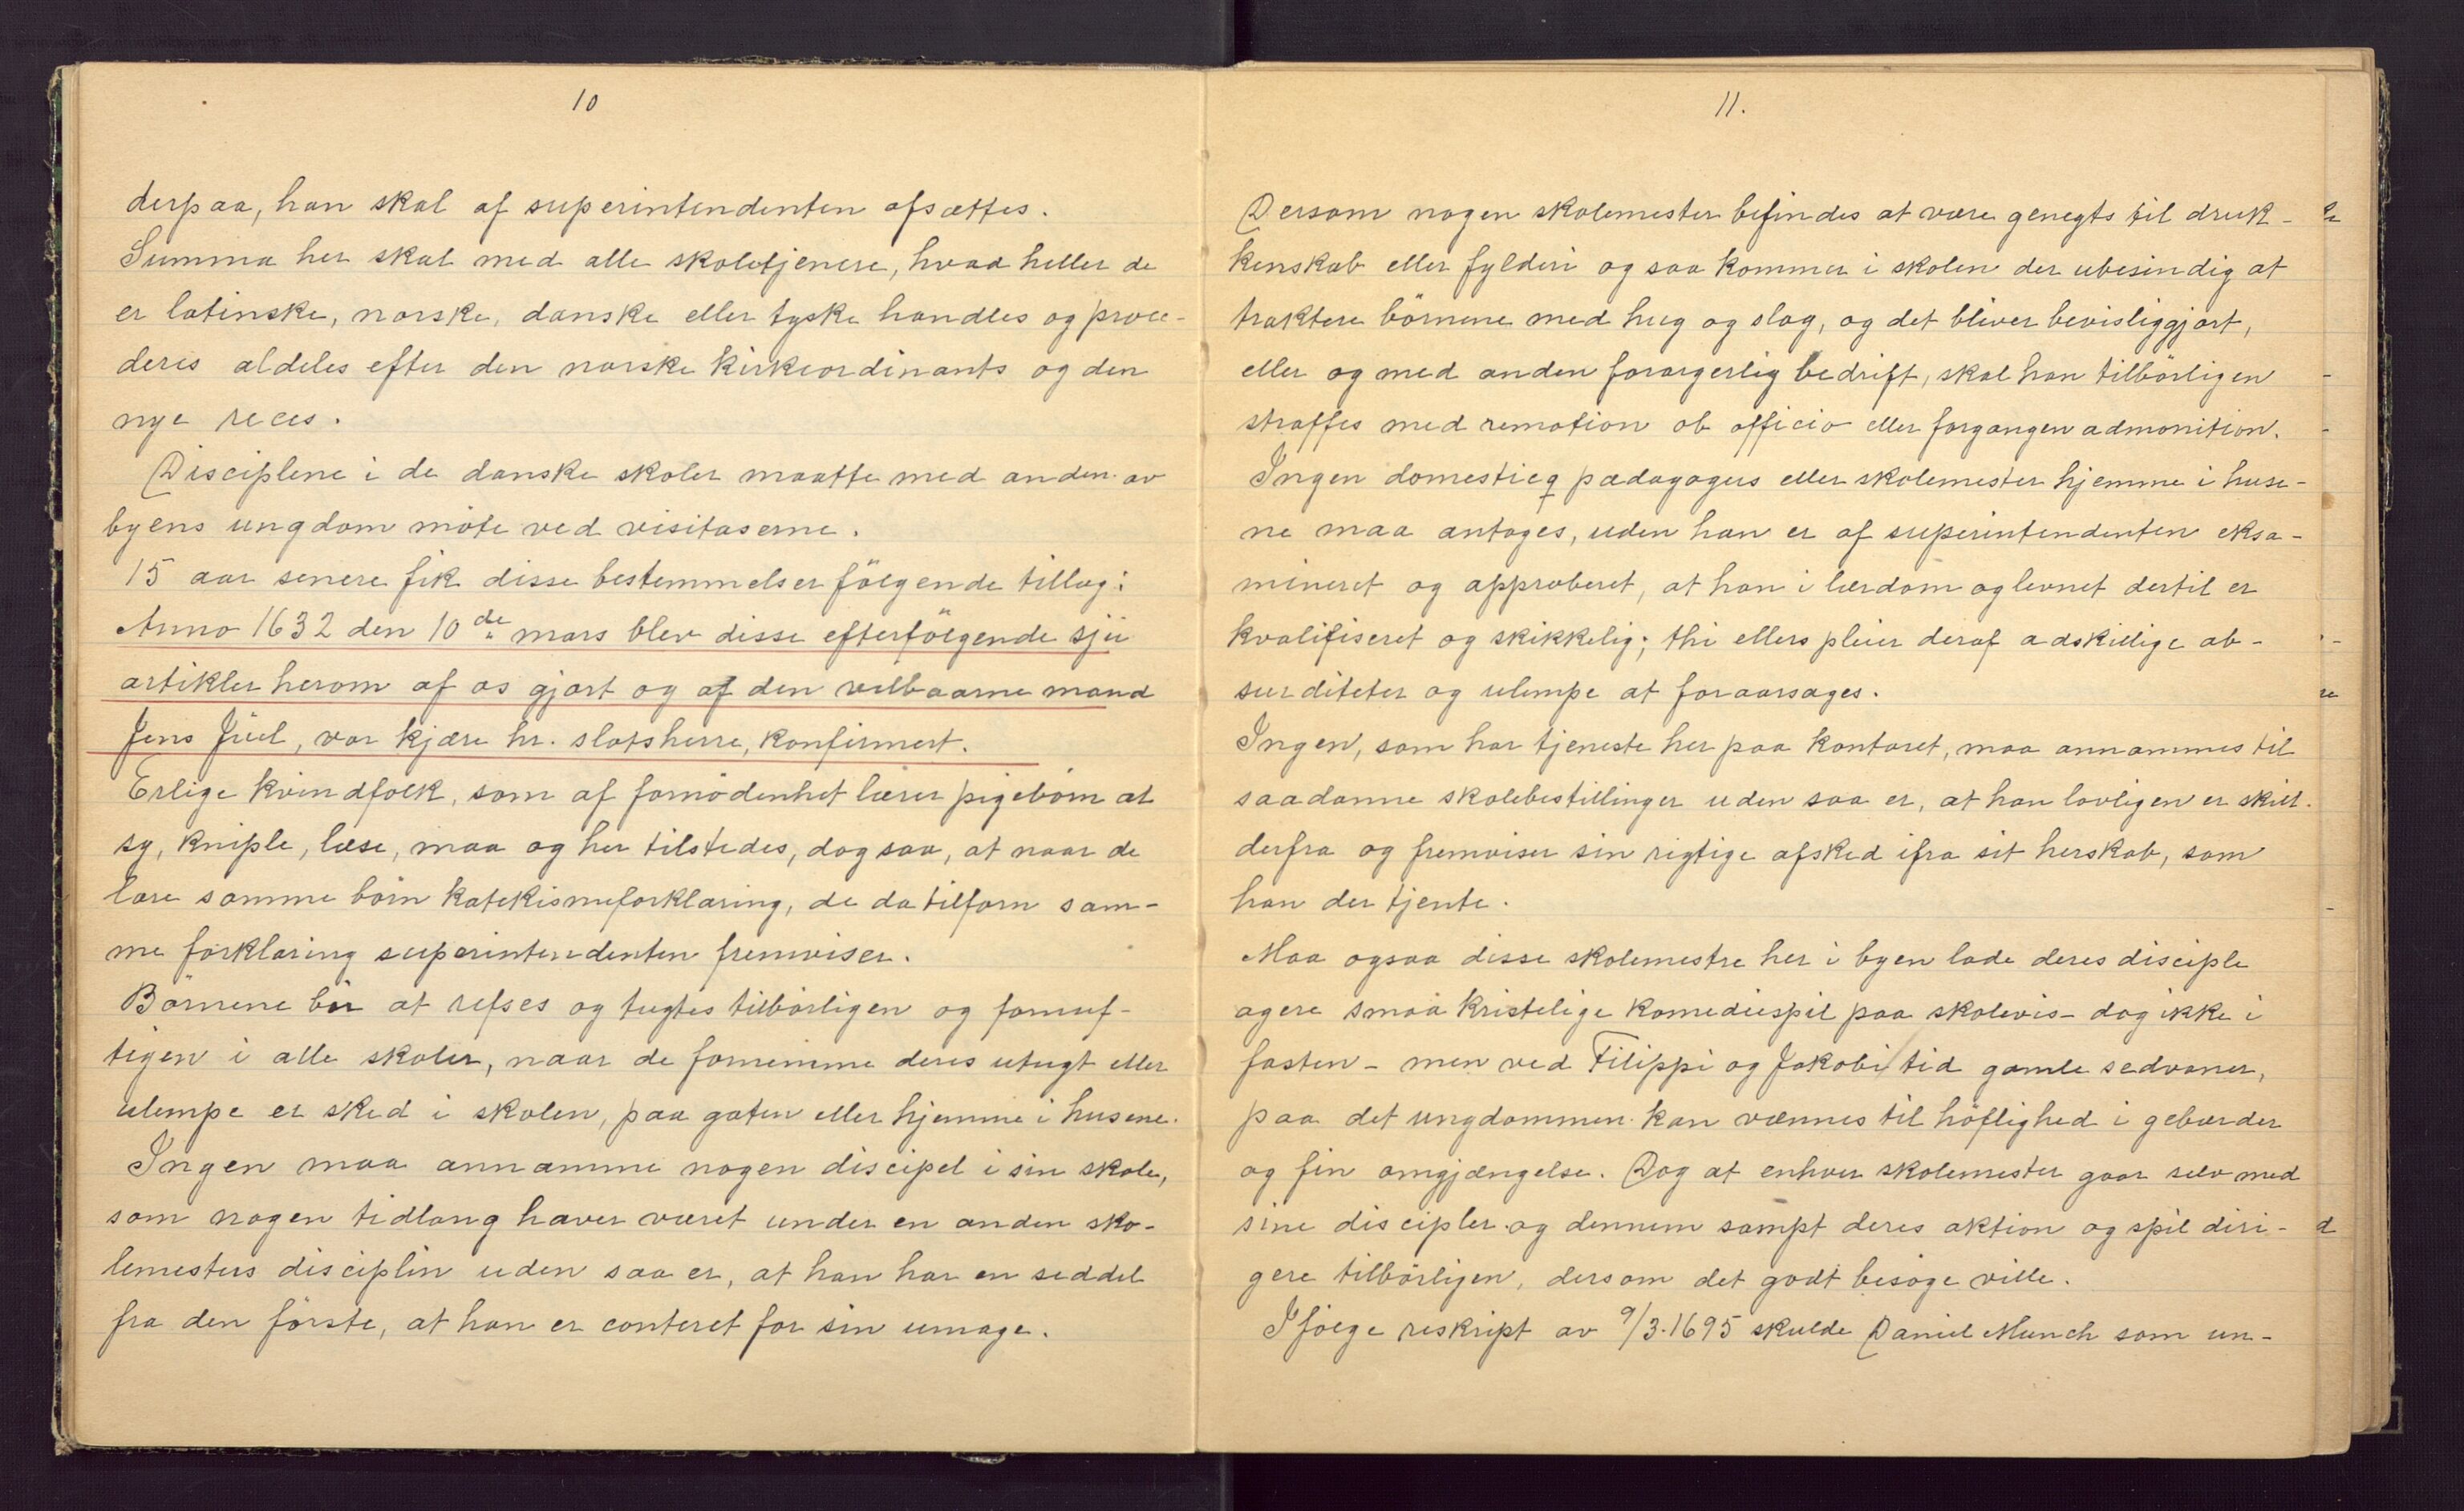 10
derpaa, han skal af superintendenten afsættes.
Summa her skal med alle skoletjenere, hvad heller de
er latinske, norske, danske eller tyske handles og proce-
deres aldeles efter den norske kirkeordinants og den
nye reces.
Disciplene i de danske skoler maatte med anden av
byens ungdom möte ved visitaserne.
15 aar senere fik disse bestemmelser fölgende tillæg:
Anno 1632 den 10de mars blev disse efterfölgende sju
artikler herom af os gjort og af den velbaarne mand
Jens Juel, vor kjære hr. slotsherre, konfirmert.
Erlige kvindfolk, som af fornödenhet lærer pigebörn at
sy, kniple, læse, maa og her tilstedes, dog saa, at naar de
lære samme börn katekismeforklaring, de da tilforn sam-
me forklaring superintendenten fremviser.
Börnene bör at refses og tugtes tilbörligen og fornuf-
tigen i alle skoler, naar de fornemme deres utugt eller
ulempe er sked i skolen, paa gaten eller hjemme i husene.
Ingen maa annamme nogen discipel i sin skole,
som nogen tidlang haver været under en anden sko-
lemesters disciplin uden saa er, at han har en seddel
fra den förste, at han er conteret for sin umage.
11.
Dersom nogen skolemester befindes at være genegts til druk-
kenskab eller fylderi og saa kommer i skolen der ubesindig at
traktere börnene med hug og slag, og det bliver bevisliggjort,
eller og med anden forargerlig bedrift, skal han tilbörligen
straffes med remotion ob officio eller forgangen admonition.
Ingen domesticq pædagogus eller skolemester hjemme i huse-
ne maa antages, uden han er af superintendenten eksa-
mineret og approberet, at han i lærdom og levnet dertil er
kvalifiseret og skikkelig; thi ellers pleier deraf adskillige ab-
surditeter og ulempe at foraarsages.
Ingen, som har tjeneste her paa kontoret, maa annammes til
saadanne skolebestillinger uden saa er, at han lovligen er skilt
derfra og fremviser sin rigtige afsked ifra sit herskab, som
han der tjente.
Maa ogsaa disse skolemestre her i byen lade deres disciple
agere smaa kristelige komediespil paa skolevis - dog ikke i
fasten - men ved Filippi og Jakobi tid gamle sedvaner,
paa det ungdommen kan vænnes til höflighed i gebærder
og fin omgjængelse. Dog at enhver skolemester gaar selv med
sine discipler og dennem sampt deres aktion og spil diri-
gere tilbörligen, dersom det godt besöge ville.
Ifölge reskript av 9/3.1695 skulde Daniel Munch som un-